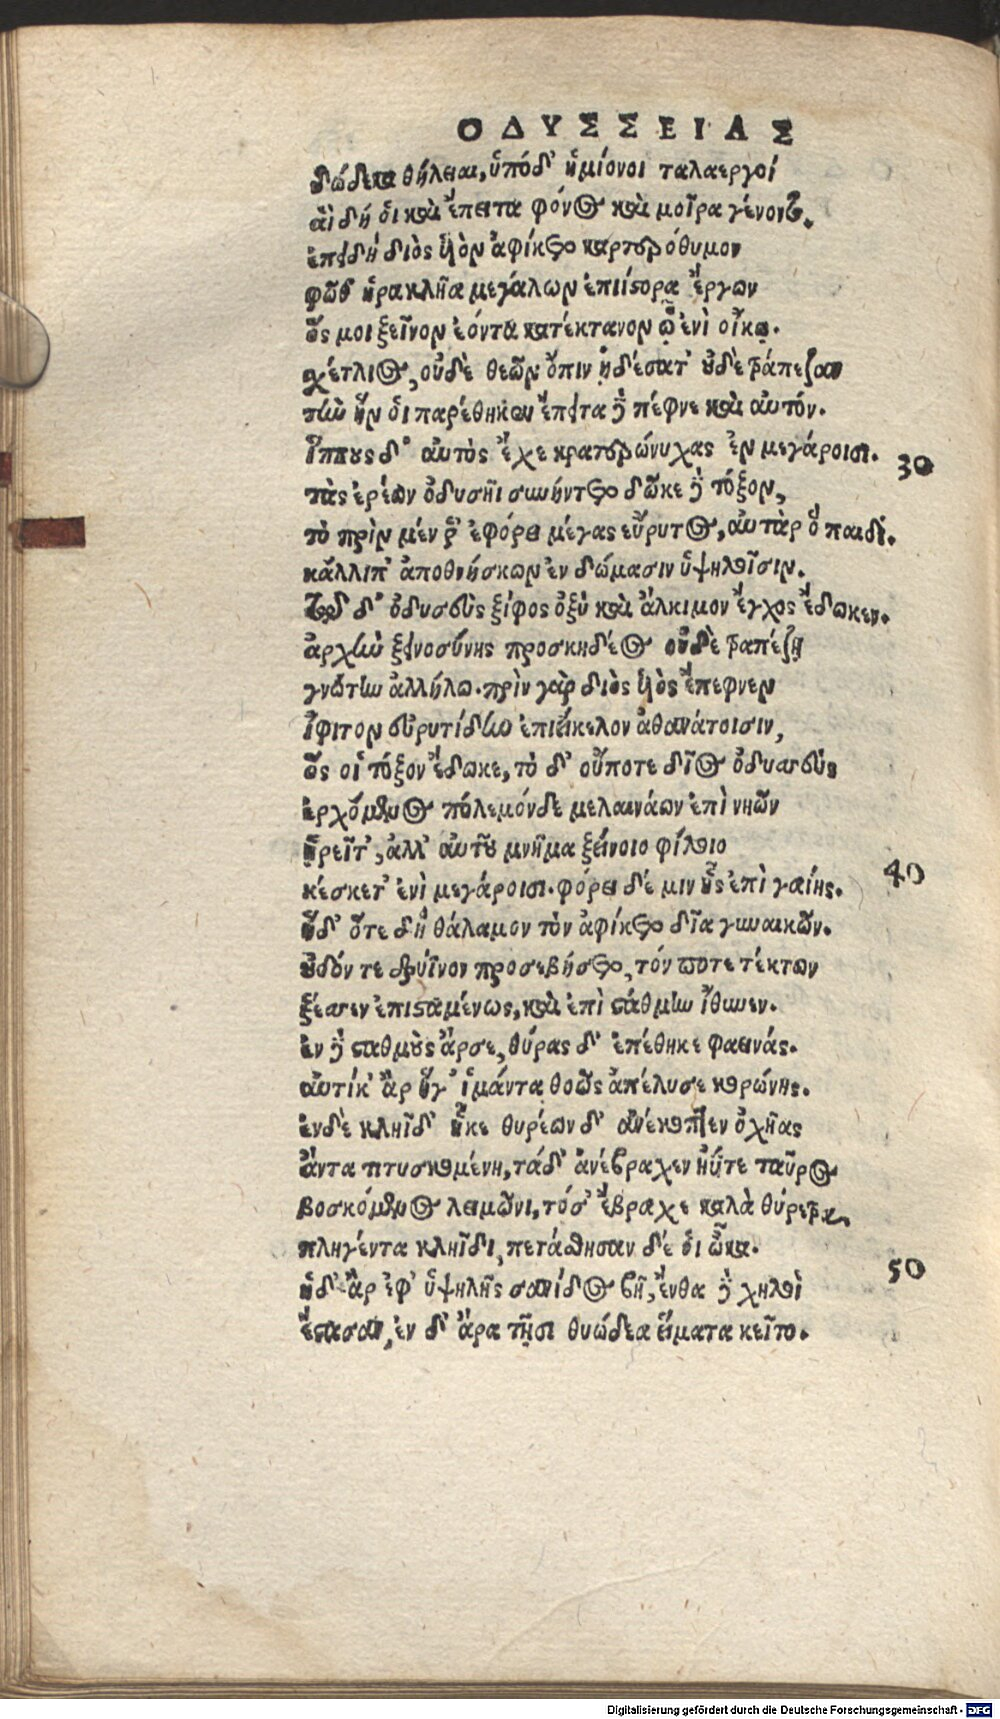 ΟΔΥΣΣΕΙΑΣ
δώδεκα θήλειαι, ὑπὸ δ' ἡμίονοι ταλαεργοί
αἳ δή οἱ καὶ ἔπειτα φόνος καὶ μοῖρα γένοντο.
ἐπειδὴ διὸς υἱὸν ἀφίκετο καρτερόθυμον
φῶθ' ἡρακλῆα μεγάλων ἐπιίστορα ἔργων
ὅς μοι ξεῖνον ἐόντα κατέκτανον ᾧ ἐνὶ οἴκῳ.
σχέτλιος, οὐδὲ θεῶν ὄπιν ᾐδέσατ' οὐδὲ τράπεζαν
τὴν ἥν οἱ παρέθηκεν ἔπειτα δὲ πέφνε καὶ αὐτόν.
ἵππους δ' αὐτὸς ἔχε κρατερώνυχας ἐν μεγάροισι. 30
τὰς ἐρέων ὀδυσῆι συνήντετο δῶκε δὲ τόξον,
τὸ πρὶν μέν ῥ' ἐφόρει μέγας εὔρυτος, αὐτὰρ ὃ παιδί.
κάλλιπ' ἀποθνήσκων ἐν δώμασιν ὑψηλοῖσιν.
τῷ δ' ὀδυσεὺς ξίφος ὀξὺ καὶ ἄλκιμον ἔγχος ἔδωκεν.
ἀρχὴν ξεινοσύνης προσκηδέος οὐδὲ τραπέζῃ
γνώτην ἀλλήλω. πρὶν γὰρ διὸς υἱὸς ἔπεφνεν
ἴφιτον εὐρυτίδην ἐπιείκελον ἀθανάτοισιν,
ὅς οἱ τόξον ἔδωκε, τὸ δ' οὔποτε δῖος ὀδυσσεὺς
ἐρχόμενος πόλεμόνδε μελαινάων ἐπὶ νηῶν
ᾑρεῖτ', ἀλλ' αὐτοῦ μνῆμα ξείνοιο φίλοιο
κέσκετ' ἐνὶ μεγάροισι. φόρει δέ μιν ἧς ἐπὶ γαίης. 40
ἡ δ' ὅτε δὴ θάλαμον τὸν ἀφίκετο δῖα γυναικῶν.
οὐδόν τε δρύϊνον προσεβήσετο, τόν ποτε τέκτων
ξέσσεν ἐπισταμένως, καὶ ἐπὶ στάθμην ἴθυνεν.
ἐν δὲ σταθμοὺς ἄρσε, θύρας δ' ἐπέθηκε φαεινάς.
αὐτίκ' ἂρ ἥγ' ἱμάντα θοῶς ἀπέλυσε κορώνης.
ἐν δὲ κληῖδ' ἧκε θυρέων δ' ἀνέκοπτεν ὀχῆας
ἄντα τιτυσκομένη, τάδ' ἀνέβραχεν ἠΰτε ταῦρος
βοσκόμενος λειμῶνι, τόσ' ἔβραχε καλὰ θύρετρα
πληγέντα κληῖδι, πετάσθησαν δέ οἱ ὦκα.
ἡ δ' ἂρ ἐφ' ὑψηλῆς σανίδος βῆ, ἔνθα δὲ χηλοὶ 50
ἕστασαν, ἐν δ' ἄρα τῇσι θυώδεα εἵματα κεῖτο.
Digitalisierung gefördert durch die Deutsche Forschungsgemeinschaft - DFG